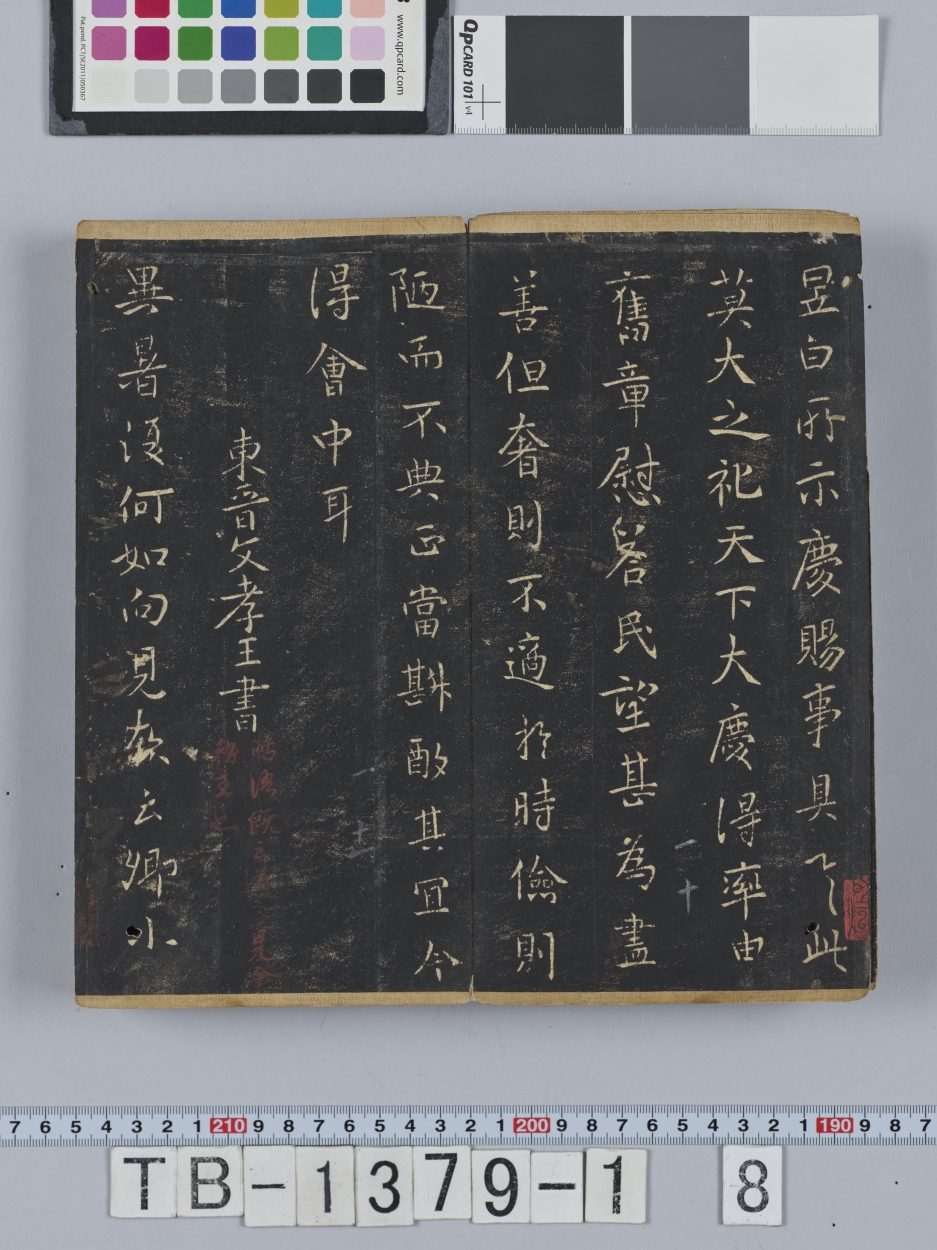 昱白所示慶賜事具了此
莫大之祀天下大慶得率由
舊章慰答民望甚為盡
善但奢則不適於時儉則
陋而不典正當斟酌其宜今
得會中耳
東晉文孝王書
異暑復何如向見敕云卿小
二十
www.qpcard.com
QpCARD 101 v4
7 6 5 4 3 2 1 210 9 8 7 6 5 4 3 2 1 200 9 8 7 6 5 4 3 2 1 190 9 8 7
TB-1379-1 8